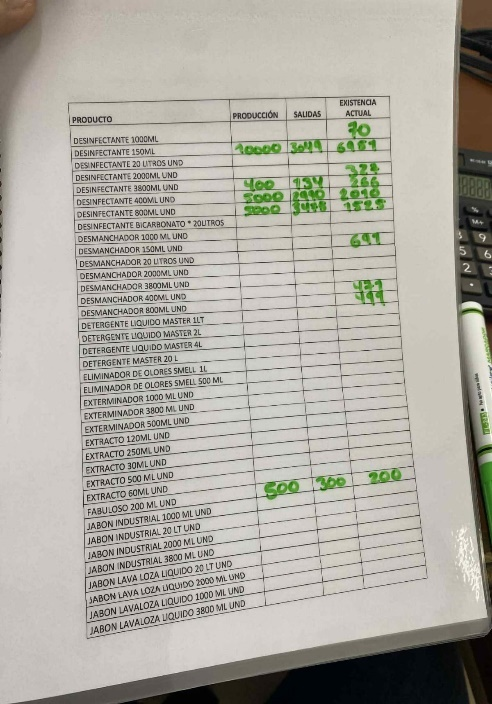 PRODUCTO PRODUCCIÓN SALIDAS EXISTENCIA ACTUAL
DESINFECTANTE 1000ML 70
DESINFECTANTE 150ML 10000 3049 6951
DESINFECTANTE 20 LITROS UND
DESINFECTANTE 2000ML UND 324
DESINFECTANTE 3800ML UND 400 134 266
DESINFECTANTE 400ML UND 5000 2990 2010
DESINFECTANTE 800ML UND 5000 3475 1525
DESINFECTANTE BICARBONATO * 20LITROS
DESMANCHADOR 1000 ML UND
DESMANCHADOR 150ML UND 691
DESMANCHADOR 20 LITROS UND
DESMANCHADOR 2000ML UND
DESMANCHADOR 3800ML UND
DESMANCHADOR 400ML UND
DESMANCHADOR 800ML UND
DETERGENTE LIQUIDO MASTER 1LT
DETERGENTE LIQUIDO MASTER 2L
DETERGENTE LIQUIDO MASTER 4L
DETERGENTE MASTER 20 L
ELIMINADOR DE OLORES SMELL 1L
ELIMINADOR DE OLORES SMELL 500 ML
EXTERMINADOR 1000 ML UND
EXTERMINADOR 3800 ML UND
EXTERMINADOR 500ML UND
EXTRACTO 120ML UND
EXTRACTO 250ML UND
EXTRACTO 30ML UND
EXTRACTO 500 ML UND
EXTRACTO 60ML UND
FABULOSO 200 ML UND 500 300 200
JABON INDUSTRIAL 1000 ML UND
JABON INDUSTRIAL 20 LT UND
JABON INDUSTRIAL 2000 ML UND
JABON INDUSTRIAL 3800 ML UND
JABON LAVA LOZA LIQUIDO 20 LT UND
JABON LAVA LOZA LIQUIDO 2000 ML UND
JABON LAVALOZA LIQUIDO 1000 ML UND
JABON LAVALOZA LIQUIDO 3800 ML UND